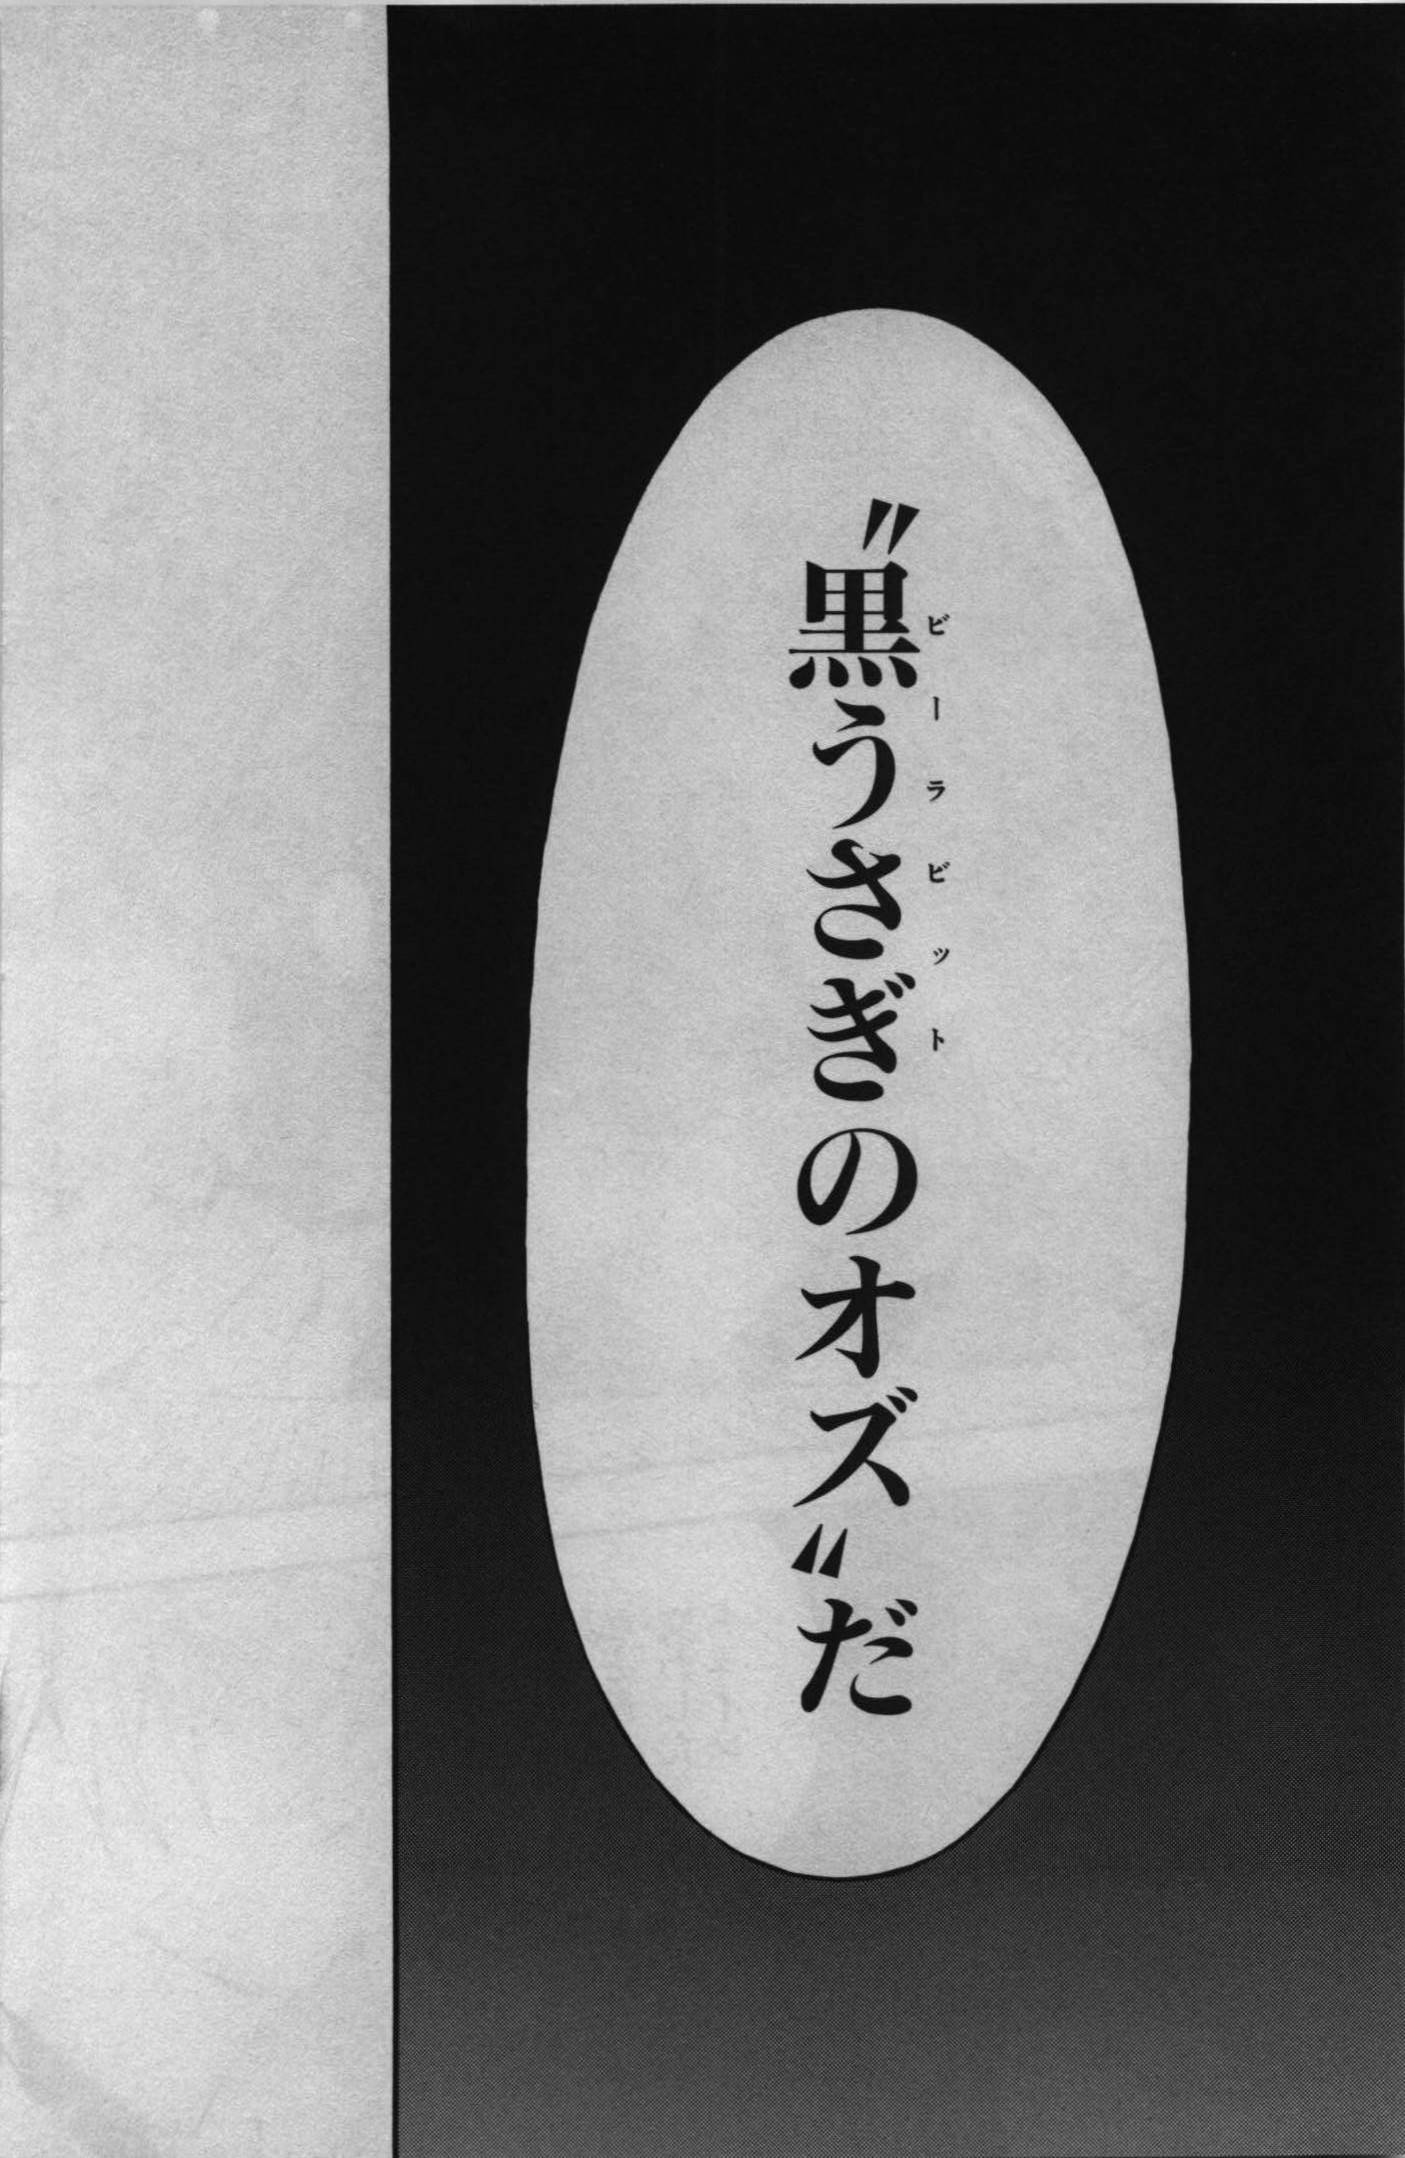 〝黒うさぎのオズ〟だ
ビーラビット